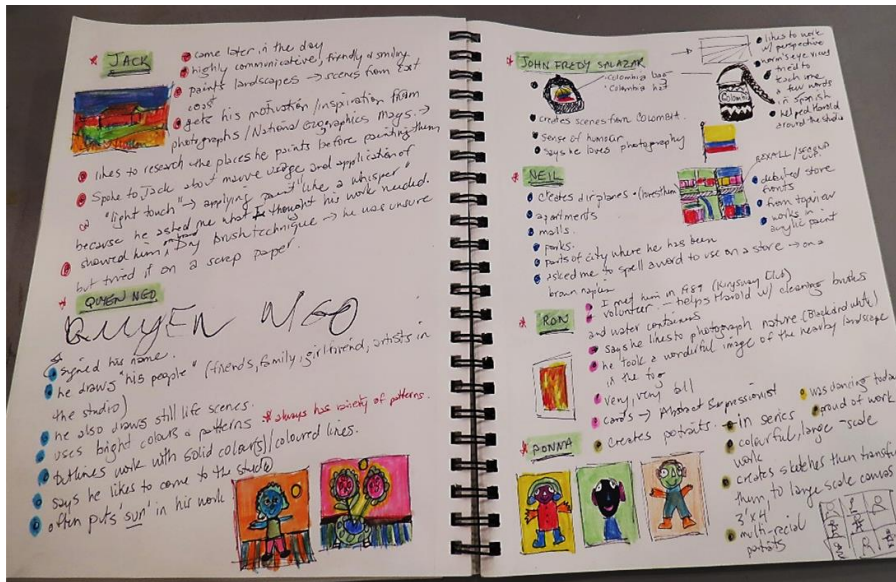 * JACK
came later in the day
highly communicative, friendly & smiley
paints landscapes → scenes from East
coast
gets his motivation/inspiration from
photographs/National Geographics mags. →
likes to research the places he paints before painting them
Spoke to Jack about mauve usage and application of
a "light touch" → applying paint "like a whisper"
because he asked me what I thought his work needed.
showed him Dry brush technique → he was unsure
but tried it on a scrap paper.
* QUYEN NGO
QUYEN NGO
signed his name.
he draws "his people" (friends, family, girlfriend, artists in
the studio)
he also draws still life scenes.
uses bright colours & patterns * always has variety of patterns.
outlines work with solid colour(s)/coloured lines.
says he likes to come to the studio
often puts 'sun' in his work
* JOHN FREDY SALAZAR
'Colombia bag
'Colombia hat
Colombia
likes to work
w/ perspective
worm's eye views
tried to
teach me
a few words
in Spanish
helped Harold
around the studio
creates scenes from Colombia.
sense of humour
says he loves photography
* NEIL
creates airplanes
apartments
malls.
parks.
parts of city where he has been
asked me to spell a word to use on a store → on a
brown napkin
detailed store
fronts
from top view
works in
acrylic paint
* RON
I met him in 1989 (Kingsway
volunteer - helps Harold w/ cleaning brushes
and water containers
says he likes to photograph nature (Black and white)
he took a wonderful image of the nearby landscape
in the fog
very, very tall
cards → Abstract Expressionist
* DONNA
creates potraits.
in series
colourful, large-scale
work
creates sketches then
them, to large scale canvas
3' x 4'
multi-racial
potraits
was dancing today
proud of work